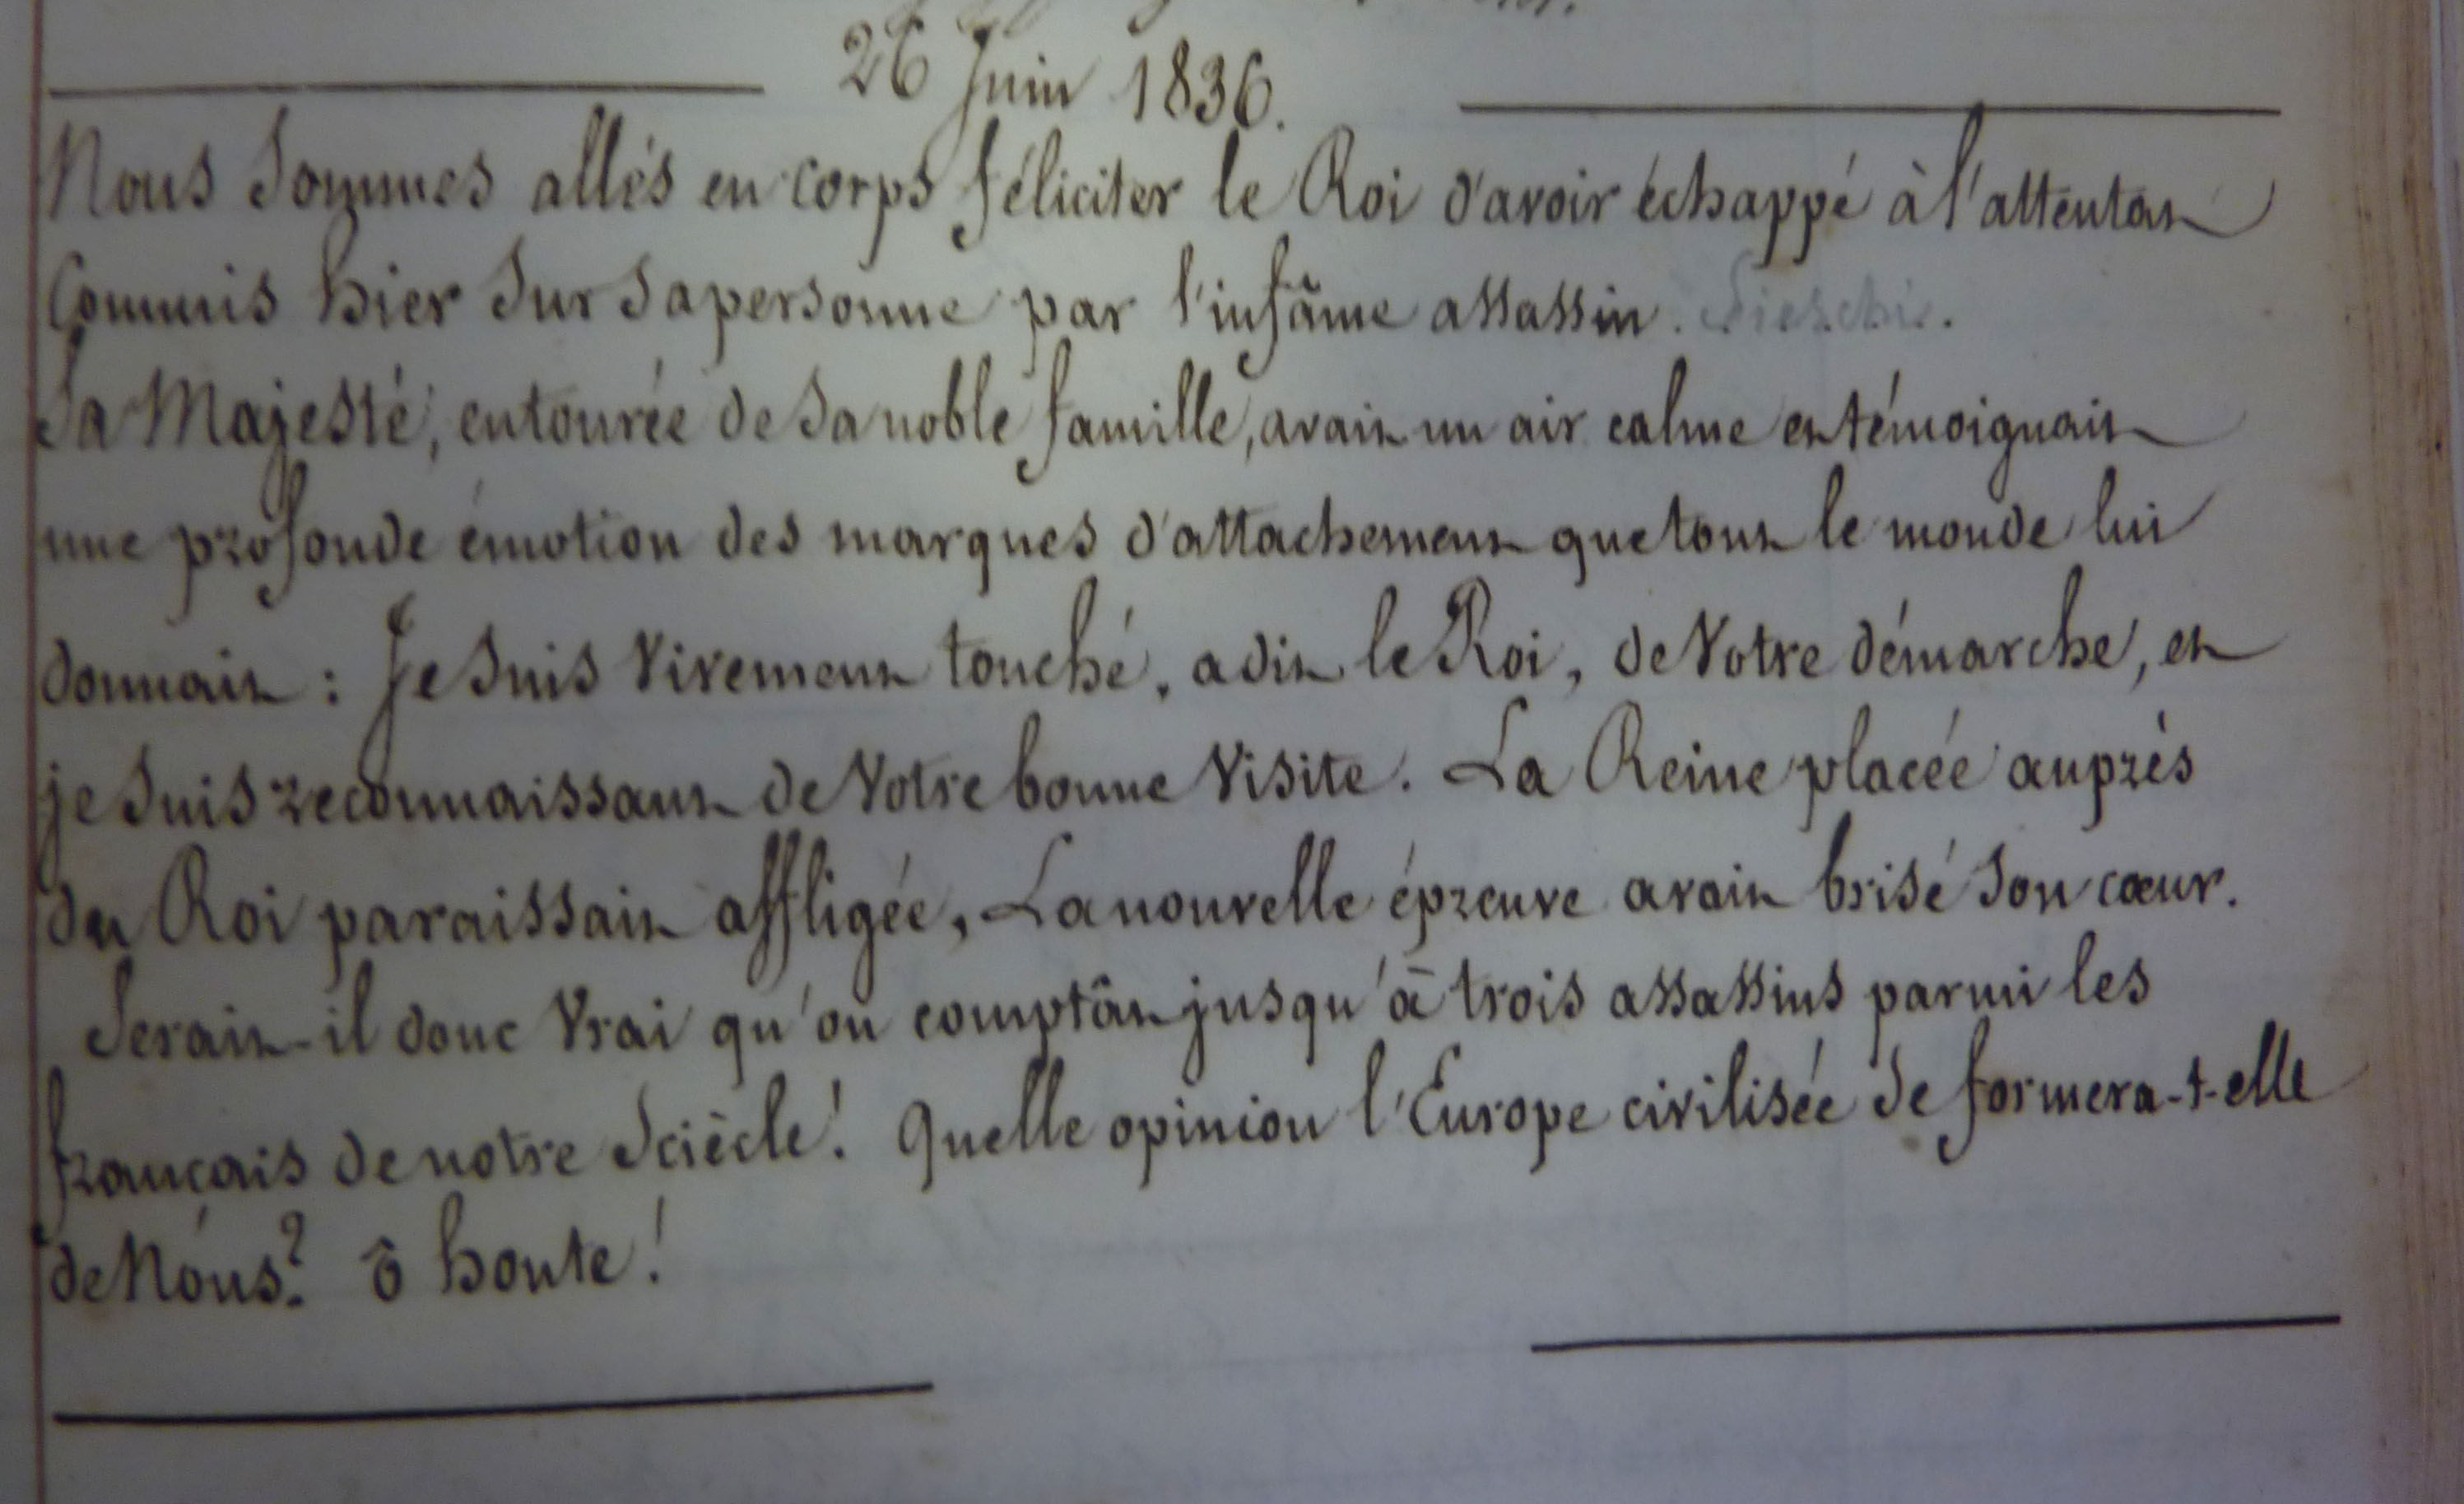 26 Juin 1836.
Nous sommes allés en corps féliciter le Roi d'avoir échappé à l'attentat
Commis hier sur sa personne par l'infâme assassin. Fieschi.
Sa Majesté, entourée de sa noble famille, avait un air calme et témoignait
une profonde émotion des marques d'attachement que tout le monde lui
donnait : Je suis vivement touché, a dit le Roi, de Votre démarche, et
je suis reconnaissant de Votre bonne visite. La Reine placée auprès
du Roi paraissait affligée, La nouvelle épreuve avait brisé son cœur.
Serait-il donc vrai qu'on comptât jusqu'à trois assassins parmi les
français de notre sciècle! Quelle opinion l'Europe civilisée se formera-t-elle
de Nous? ô honte!